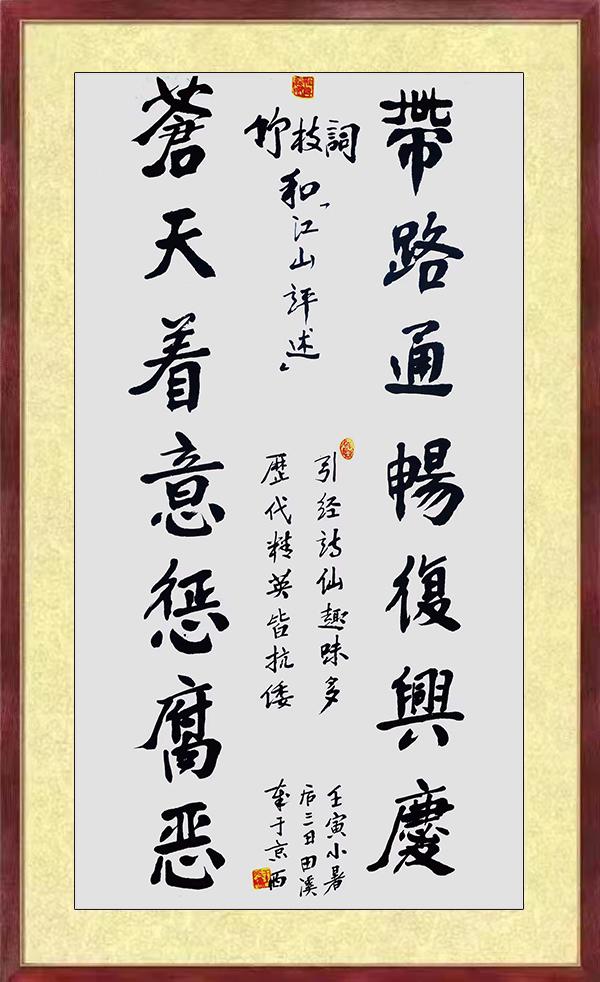 竹枝詞
和「江山評述」
帶路通暢復興慶
引经詩仙趣味多
歷代精英皆抗倭
蒼天着意惩腐恶
壬寅小暑
后三日田溪
于京西